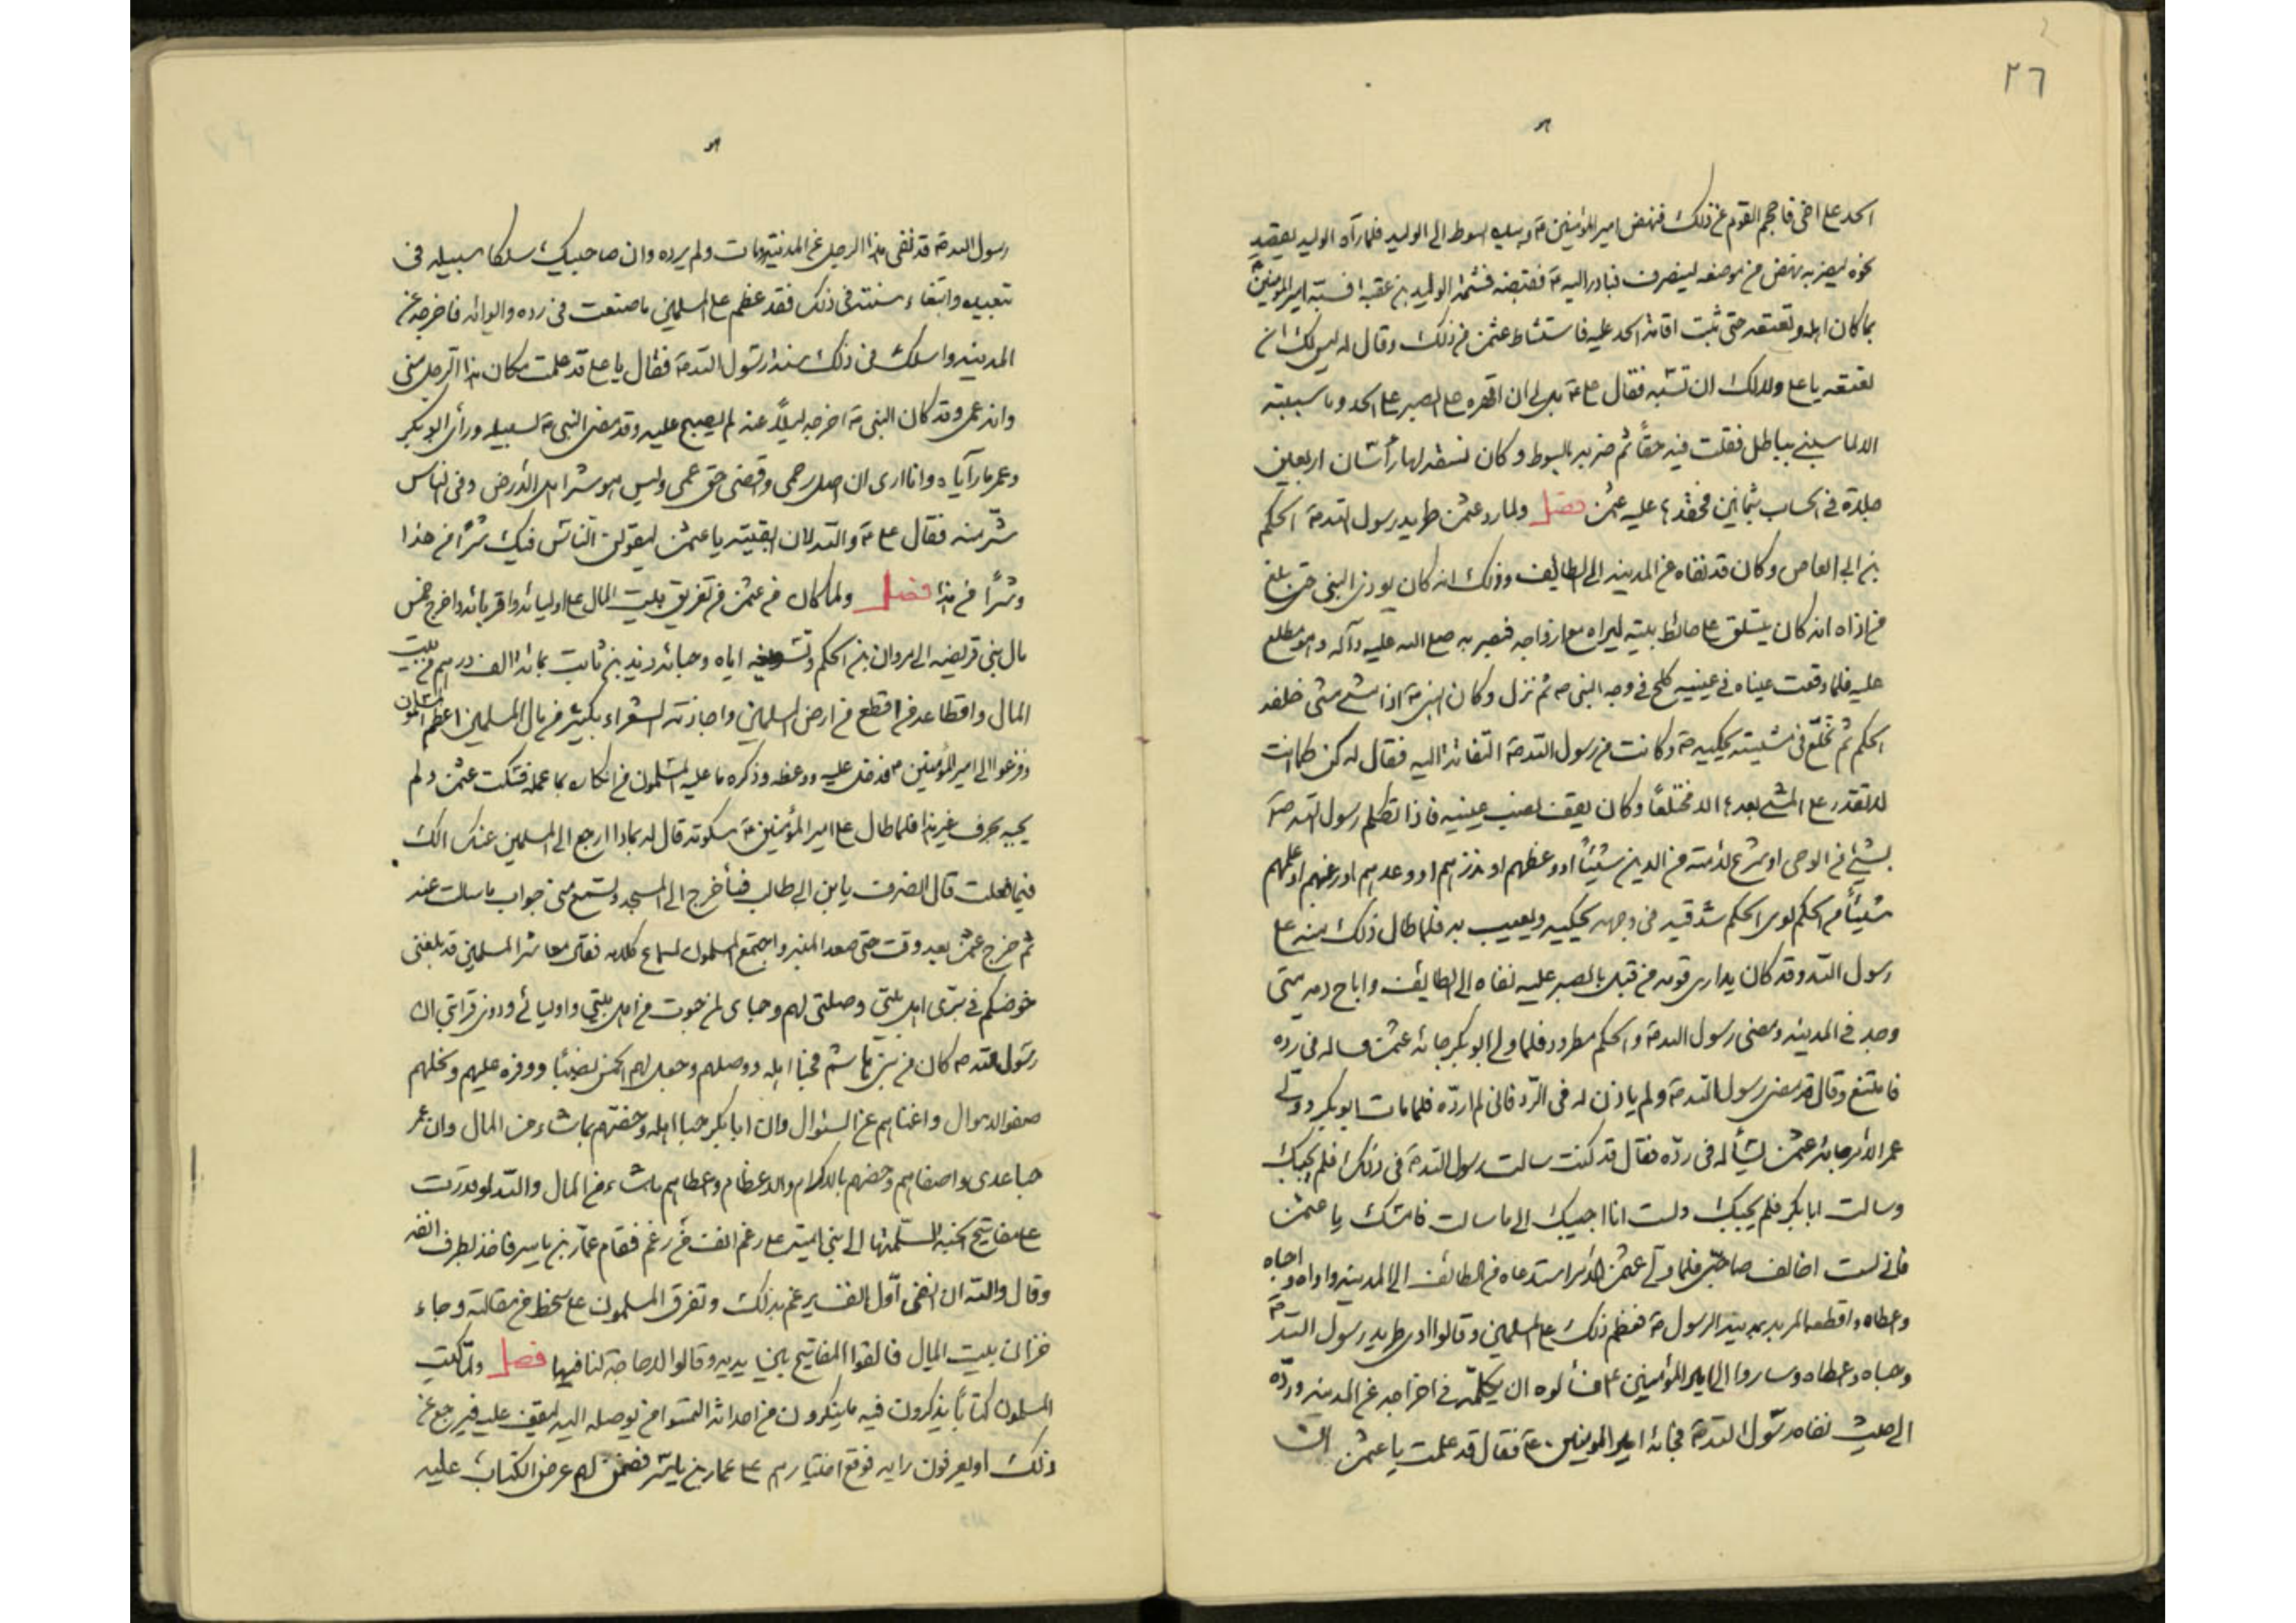 ٢٦
الحد على اخى فاحجم القوم عن ذلك فنهض امير المؤمنين ع و بيده السوط الى الوليد فلما رآه الوليد يقصد
نحوه ليضربه نهض من موضعه لينصرف فبادر اليه ع فقبضه فشتمه الوليد بن عقبة فسبه امير المؤمنين ع
بما كان اهله وتعتعه حتى ثبت اقامة الحد عليه فاستشاط عثمن من ذلك وقال له ليس لك ان
تعتعه يا على ولا لك ان تسبه فقال على ع بل لى ان اقهره على الصبر على الحد وما سببته
الا لما سبنى بباطل فقلت فيه حقاً ثم ضربه بالسوط وكان لسعته لها رأسان اربعين
جلدة فى الحساب بثمانين فحقدها عليه عثمن فصل ولما رد عثمن طريد رسول الله ص الحكم
بن ابى العاص وكان قد نفاه عن المدينه الى الطائف وذلك انه كان يوذى النبى حتى بلغ
من اذاه انه كان يتسلق على حائط بيته ليراه مع ازواجه فبصر به صلى الله عليه وآله وهو مطلع
عليه فلما وقعت عيناه فى عينيه كلح فى وجه النبى ص ثم نزل وكان النبى ص اذا مشى مشى خلفه
الحكم ثم تخلّع فى مشيته يحكيه ص وكانت من رسول الله ص التفاتة اليه فقال له كن كما انت
لا تقدر على المشى بعدها الا مختلعاً وكان يقف نصب عينيه فاذا تكلم رسول الله ص
بشيئ من الوحى او شرع لامته من الدين شيئاً او وعظهم او انذرهم او وعدهم او رغبهم او علمهم
شيئاً من الحكم لوى الحكم شدقيه فى وجهه يحكيه ويعيب به فلما طال ذلك منه على
رسول الله وقد كان يدارى قومه من قبل بالصبر عليه نفاه الى الطائف واباح دمه متى
وجد فى المدينه ومضى رسول الله ص والحكم مطرود فلما ولى ابوبكر جائه عثمن فساله فى رده
فامتنع وقال قد مضى رسول الله ص ولم ياذن له فى الرد فانى لم ارده فلما مات ابوبكر وولى
عمر الامر جائه عثمن يسأله فى رده فقال قد كنت سالت رسول الله ص فى ذلك فلم يجبك
وسالت ابابكر فلم يجبك ولست انا اجيبك الى ما سالت فامسك يا عثمن
فانى لست اخالف صاحبى فلما ولى عثمن الامر استدعاه من الطائف الى المدينه واواه وحباه
وعطاه واقطعه المربد بمدينة الرسول ص فعظم ذلك على المسلمين وقالوا اوى طريد رسول الله ص
وحباه وعطاه وساروا الى امير المؤمنين ع فسألوه ان يكلمه فى اخراجه عن المدينه ورده
الى حيث نفاه رسول الله ص فجائه امير المومنين ع فقال قد علمت يا عثمن ان
رسول الله ص قد نفى هذا الرجل عن المدينة ومات ولم يرده وان صاحبيك سلكا سبيله فى
تبعيده واتبعا سنته فى ذلك فقد عظم على المسلمين ما صنعت فى رده وايوائه فاخرجه عن
المدينه واسلك فى ذلك سنة رسول الله ص فقال يا على قد علمت مكان هذا الرجل منى
وانه عمى وقد كان النبى ص اخرجه ليلاً عنه لم يصبح عليه وقد مضى النبى ص لسبيله ورأى ابوبكر
وعمر ما رآياه وانا ارى ان اصل رحمى واقضى حق عمى وليس هو شر اهل الارض وفى الناس
شر منه فقال على ع والله لان ابقيته يا عثمن ليقولن الناس فيك شراً من هذا
وشراً من هذا فصل ولما كان من عثمن من تفريق بيت المال على اوليائه واقربائه واخرج خمس
مال بنى قريضه الى مروان بن الحكم وتسويغه اياه وحبائه زيد بن ثابت بمائة الف درهم من بيت
المال واقطاعه من اقطع من ارض المسلمين واجازته الشعراء بكثير من مال المسلمين اعظم المسلمون
وفزعوا الى امير المؤمنين ع فدخل عليه ووعظه وذكره ما عليه المسلمون من انكاره بما عمله فسكت عثمن ولم
يجبه بحرف غير هذا فلما طال على امير المؤمنين ع سكوته قال له بماذا ارجع الى المسلمين عنك الك
فيما فعلت قال انصرف يابن ابى طالب فسأخرج الى المسجد وتستمع منى جواب ما سالت عنه
ثم خرج عثمن بعد وقت حتى صعد المنبر واجتمع المسلمون لسماع كلامه فقال معاشر المسلمين قد بلغنى
خوضكم فى برى اهل بيتى وصلتى لهم وحباى لمن حبوت من اهل بيتى واوليائى وذوى قرابتى ان
رسول الله ص كان من بنى هاشم فحبا اهله ووصلهم وجعل لهم الخمس نصيباً ووفره عليهم ونحلهم
صفو الاموال واغناهم عن السئوال وان ابابكر حبا اهله وخصهم بما شاء من المال وان عمر
حبا عدى واصفاهم وخصهم بالاكرام والاعظام وعطاهم ما شاء من المال والله لو قدرت
على مفاتيح الجنه لسلمتها الى بنى امية على رغم انف من رغم فقام عمار بن ياسر فاخذ بطرف انفه
وقال والله ان انفى اول انف يرغم بذلك وتفرق المسلمون على سخط من مقالته وجاء
خزان بيت المال فالقوا المفاتيح بين يديه وقالوا لا حاجة لنا فيها فصل ولما كتب
المسلمون كتاباً يذكرون فيه ما ينكرون من احداثه التمسوا من يوصله اليه ليقف عليه فيرجع عن
ذلك او يعرفون رايه فوقع اختيارهم على عمار بن ياسر فضمن لهم عرض الكتاب عليه